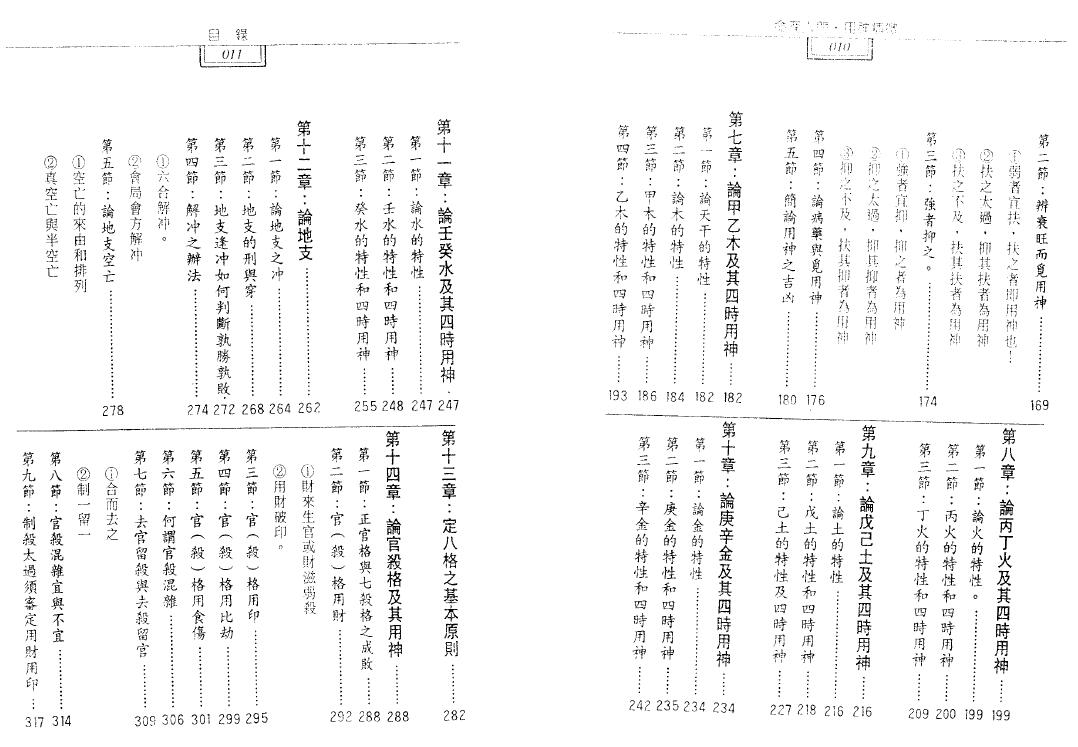 010
第二節：辨衰旺而覓用神……169
①弱者宜扶，扶之者即用神也！
②扶之太過，抑其扶者為用神
③扶之不及，扶其扶者為用神
第三節：強者抑之。……174
①強者宜抑，抑之者為用神
②抑之太過，抑其抑者為用神
③抑之不及，扶其抑者為用神
第四節：論病藥與覓用神……176
第五節：簡論用神之吉凶……180
第七章：論甲乙木及其四時用神……182
第一節：論天干的特性……182
第二節：論木的特性……184
第三節：甲木的特性和四時用神……186
第四節：乙木的特性和四時用神……193
第八章：論丙丁火及其四時用神……199
第一節：論火的特性。……199
第二節：丙火的特性和四時用神……200
第三節：丁火的特性和四時用神……209
第九章：論戊己土及其四時用神……216
第一節：論土的特性……216
第二節：戊土的特性和四時用神……218
第三節：己土的特性及四時用神……227
第十章：論庚辛金及其四時用神……234
第一節：論金的特性……234
第二節：庚金的特性和四時用神……235
第三節：辛金的特性和四時用神……242
目錄
011
第十一章：論壬癸水及其四時用神……247
第一節：論水的特性……247
第二節：壬水的特性和四時用神……248
第三節：癸水的特性和四時用神……255
第十二章：論地支……262
第一節：論地支之冲……264
第二節：地支的刑與穿……268
第三節：地支逢冲如何判斷孰勝孰敗……272
第四節：解冲之辦法……274
①六合解冲。
②會局會方解冲
第五節：論地支空亡……278
①空亡的來由和排列
②真空亡與半空亡
第十三章：定八格之基本原則……282
第十四章：論官殺格及其用神……288
第一節：正官格與七殺格之成敗……288
第二節：官（殺）格用財……292
①財來生官或財滋弱殺
②用財破印。
第三節：官（殺）格用印……295
第四節：官（殺）格用比劫……299
第五節：官（殺）格用食傷……301
第六節：何謂官殺混雜……306
第七節：去官留殺與去殺留官……309
①合而去之
②制一留一
第八節：官殺混雜宜與不宜……314
第九節：制殺太過須審定用財用印……317